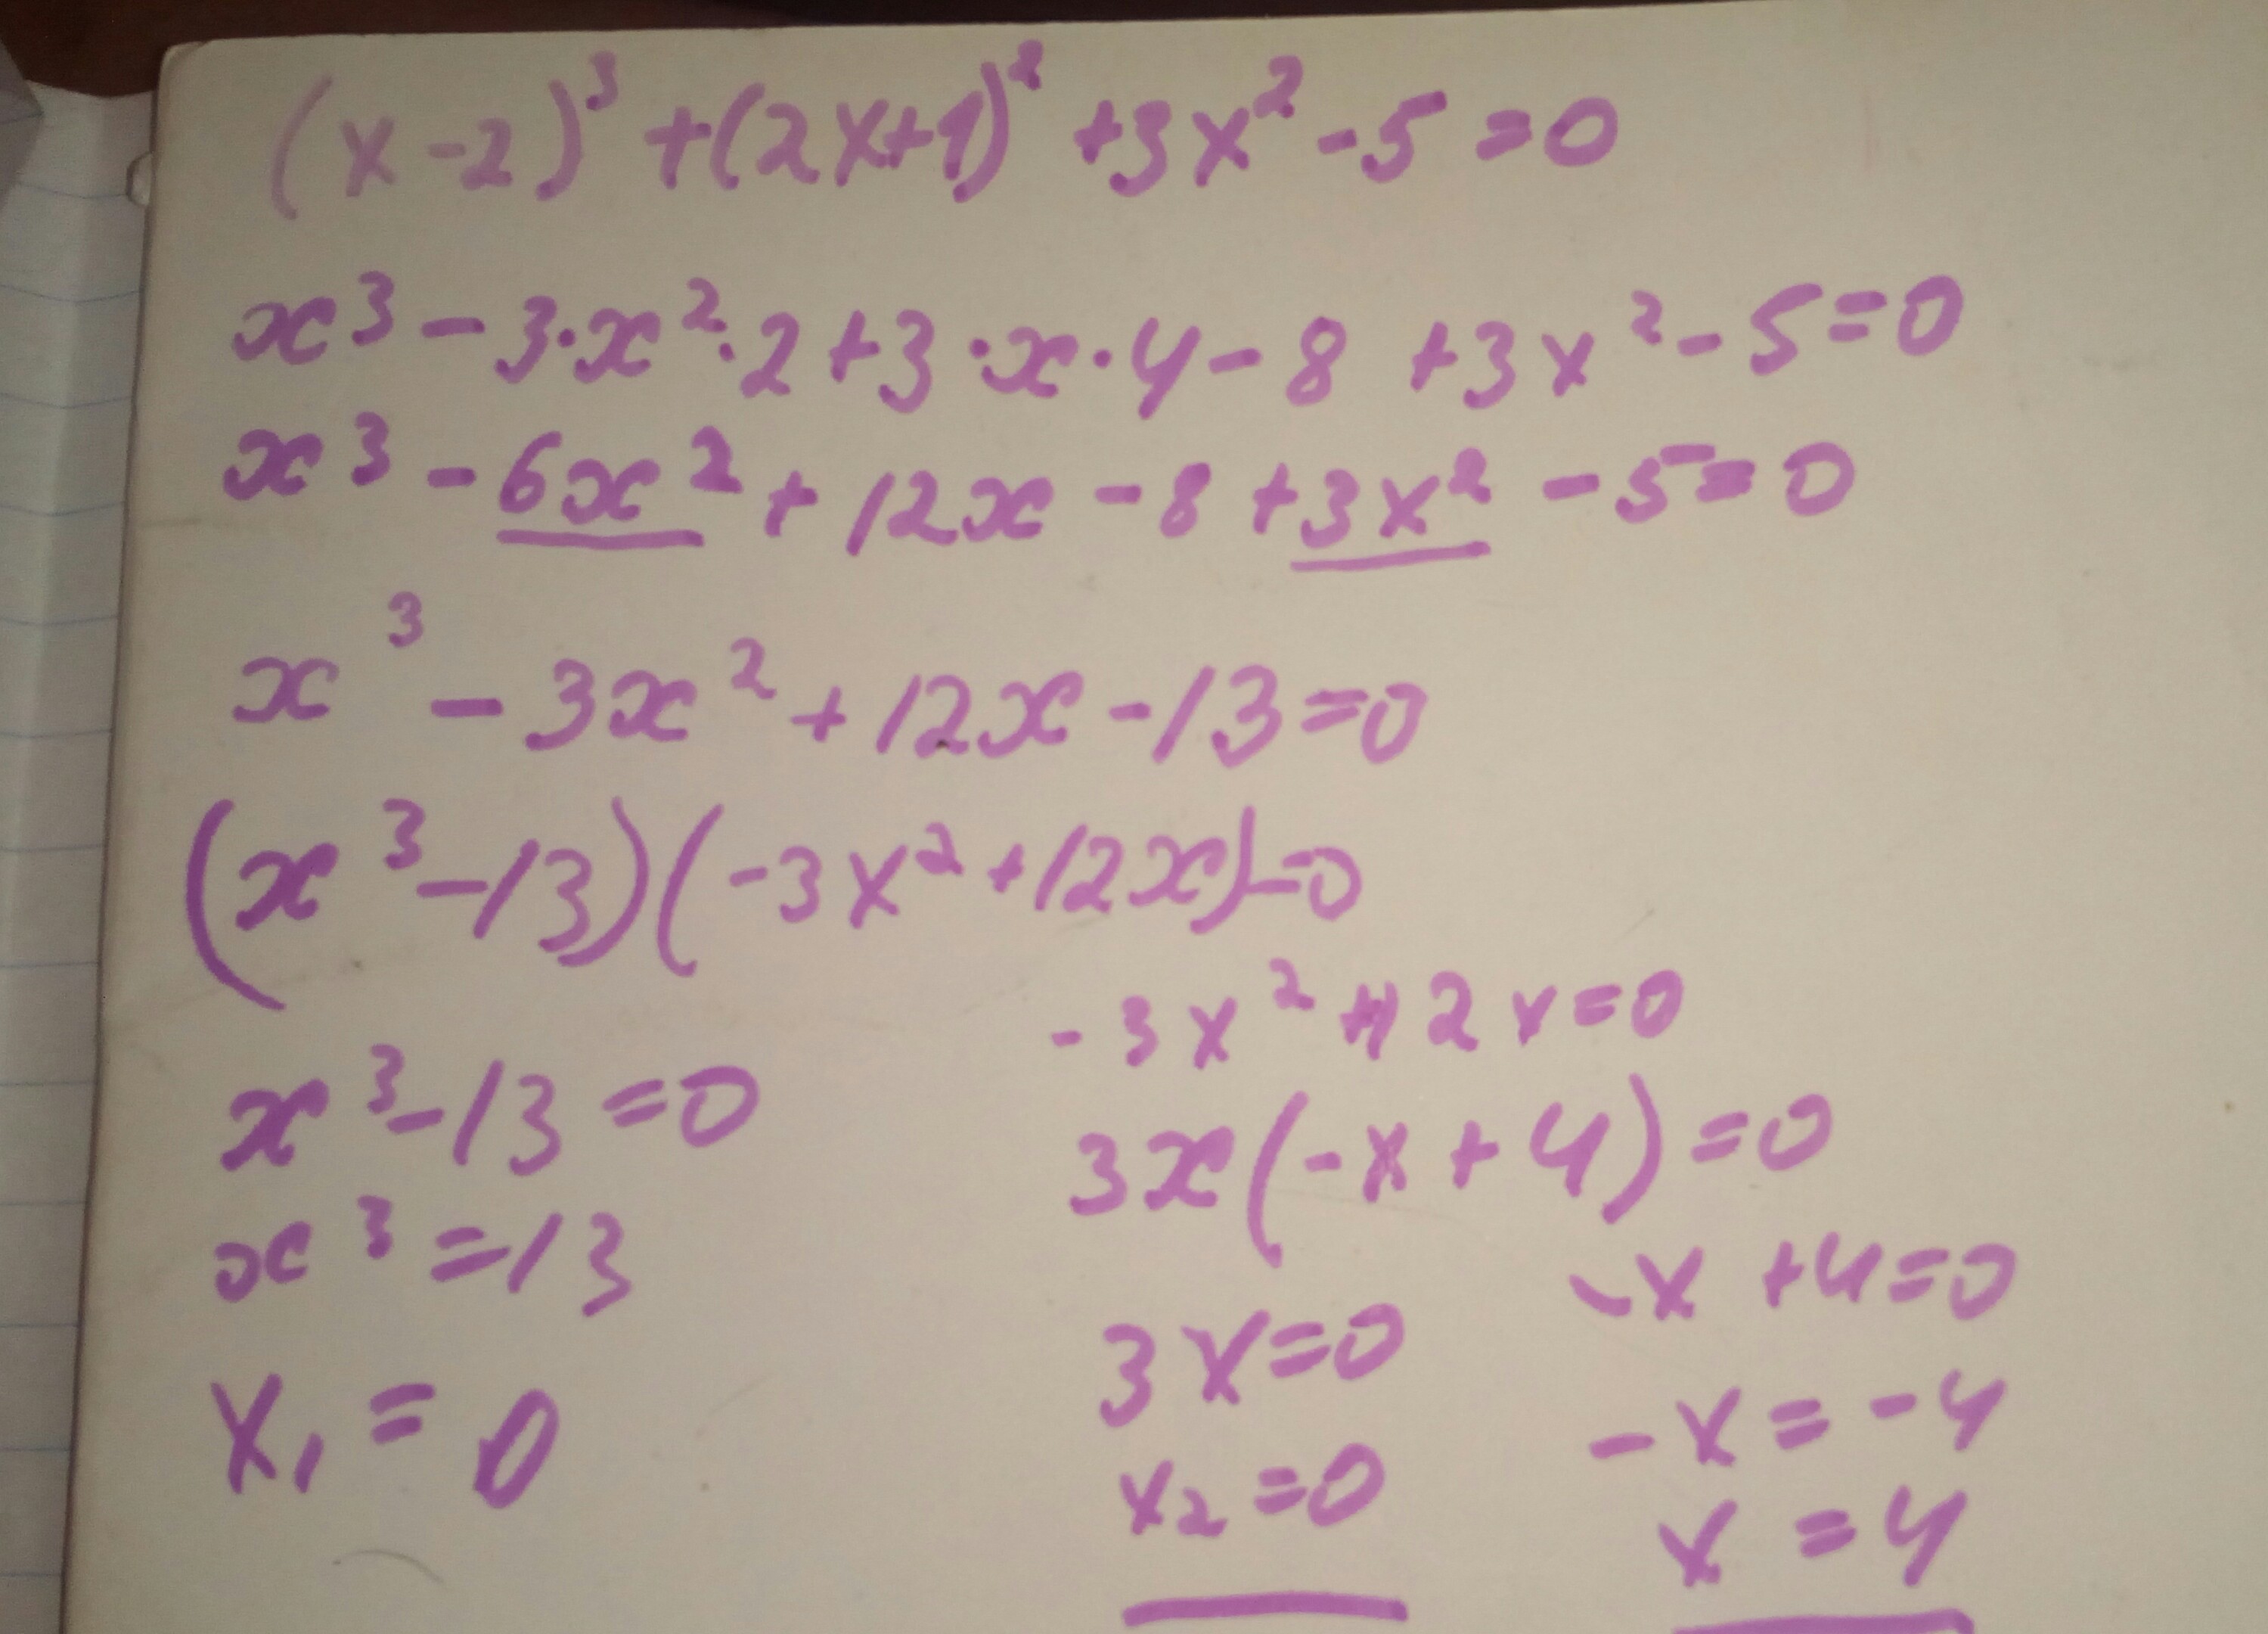 (x-2)³+(2x+1)²+3x²-5=0
x³-3·x²·2+3·x·4-8+3x²-5=0
x³-6x²+12x-8+3x²-5=0
x³-3x²+12x-13=0
(x³-13)(-3x²+12x)=0
x³-13=0
x³=13
x₁=0
-3x²+12x=0
3x(-x+4)=0
3x=0
x₂=0
-x+4=0
-x=-4
x=4